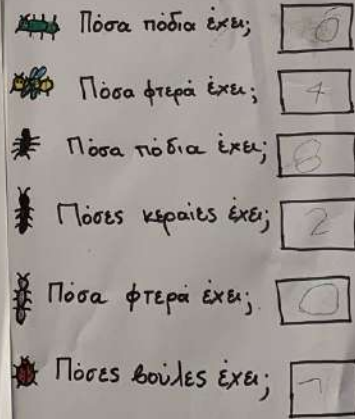 Πόσα πόδια έχει; 6
Πόσα φτερά έχει; 4
Πόσα πόδια έχει; 8
Πόσες κεραίες έχει; 2
Πόσα φτερά έχει; 0
Πόσες βούλες έχει; 7